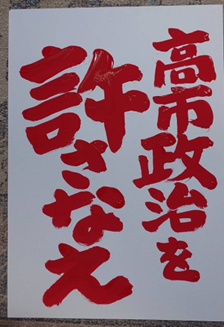 高市政治を
許さなえ